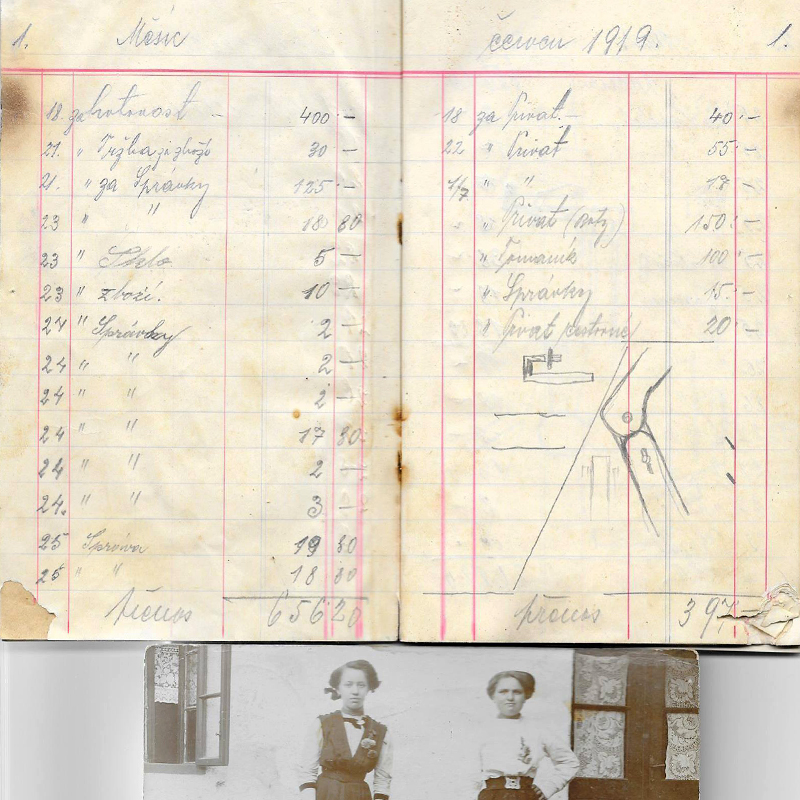 1. Měsíc
18. za hotovost - 400 -
21. " Tržba za zboží 30 -
21. " za Správky 125 -
23 " " 18 80
23 " Sklo 5 -
23 " zboží. 10 -
24 " Správky 2 -
24 " " 2 -
24 " " 2 -
24 " " 17 80
24 " " 2 -
24. " " 3 -
25 Správa 19 80
25 " " 18 80
přenos 656 20
červen 1919. 1.
18 za Privat. - 40 -
22 " Privat 55 -
1/7 " " 17 -
- " Privat (boty) 150 -
- " 100 -
- " Správky 15. -
" Privat 20 -
přenos 397 -